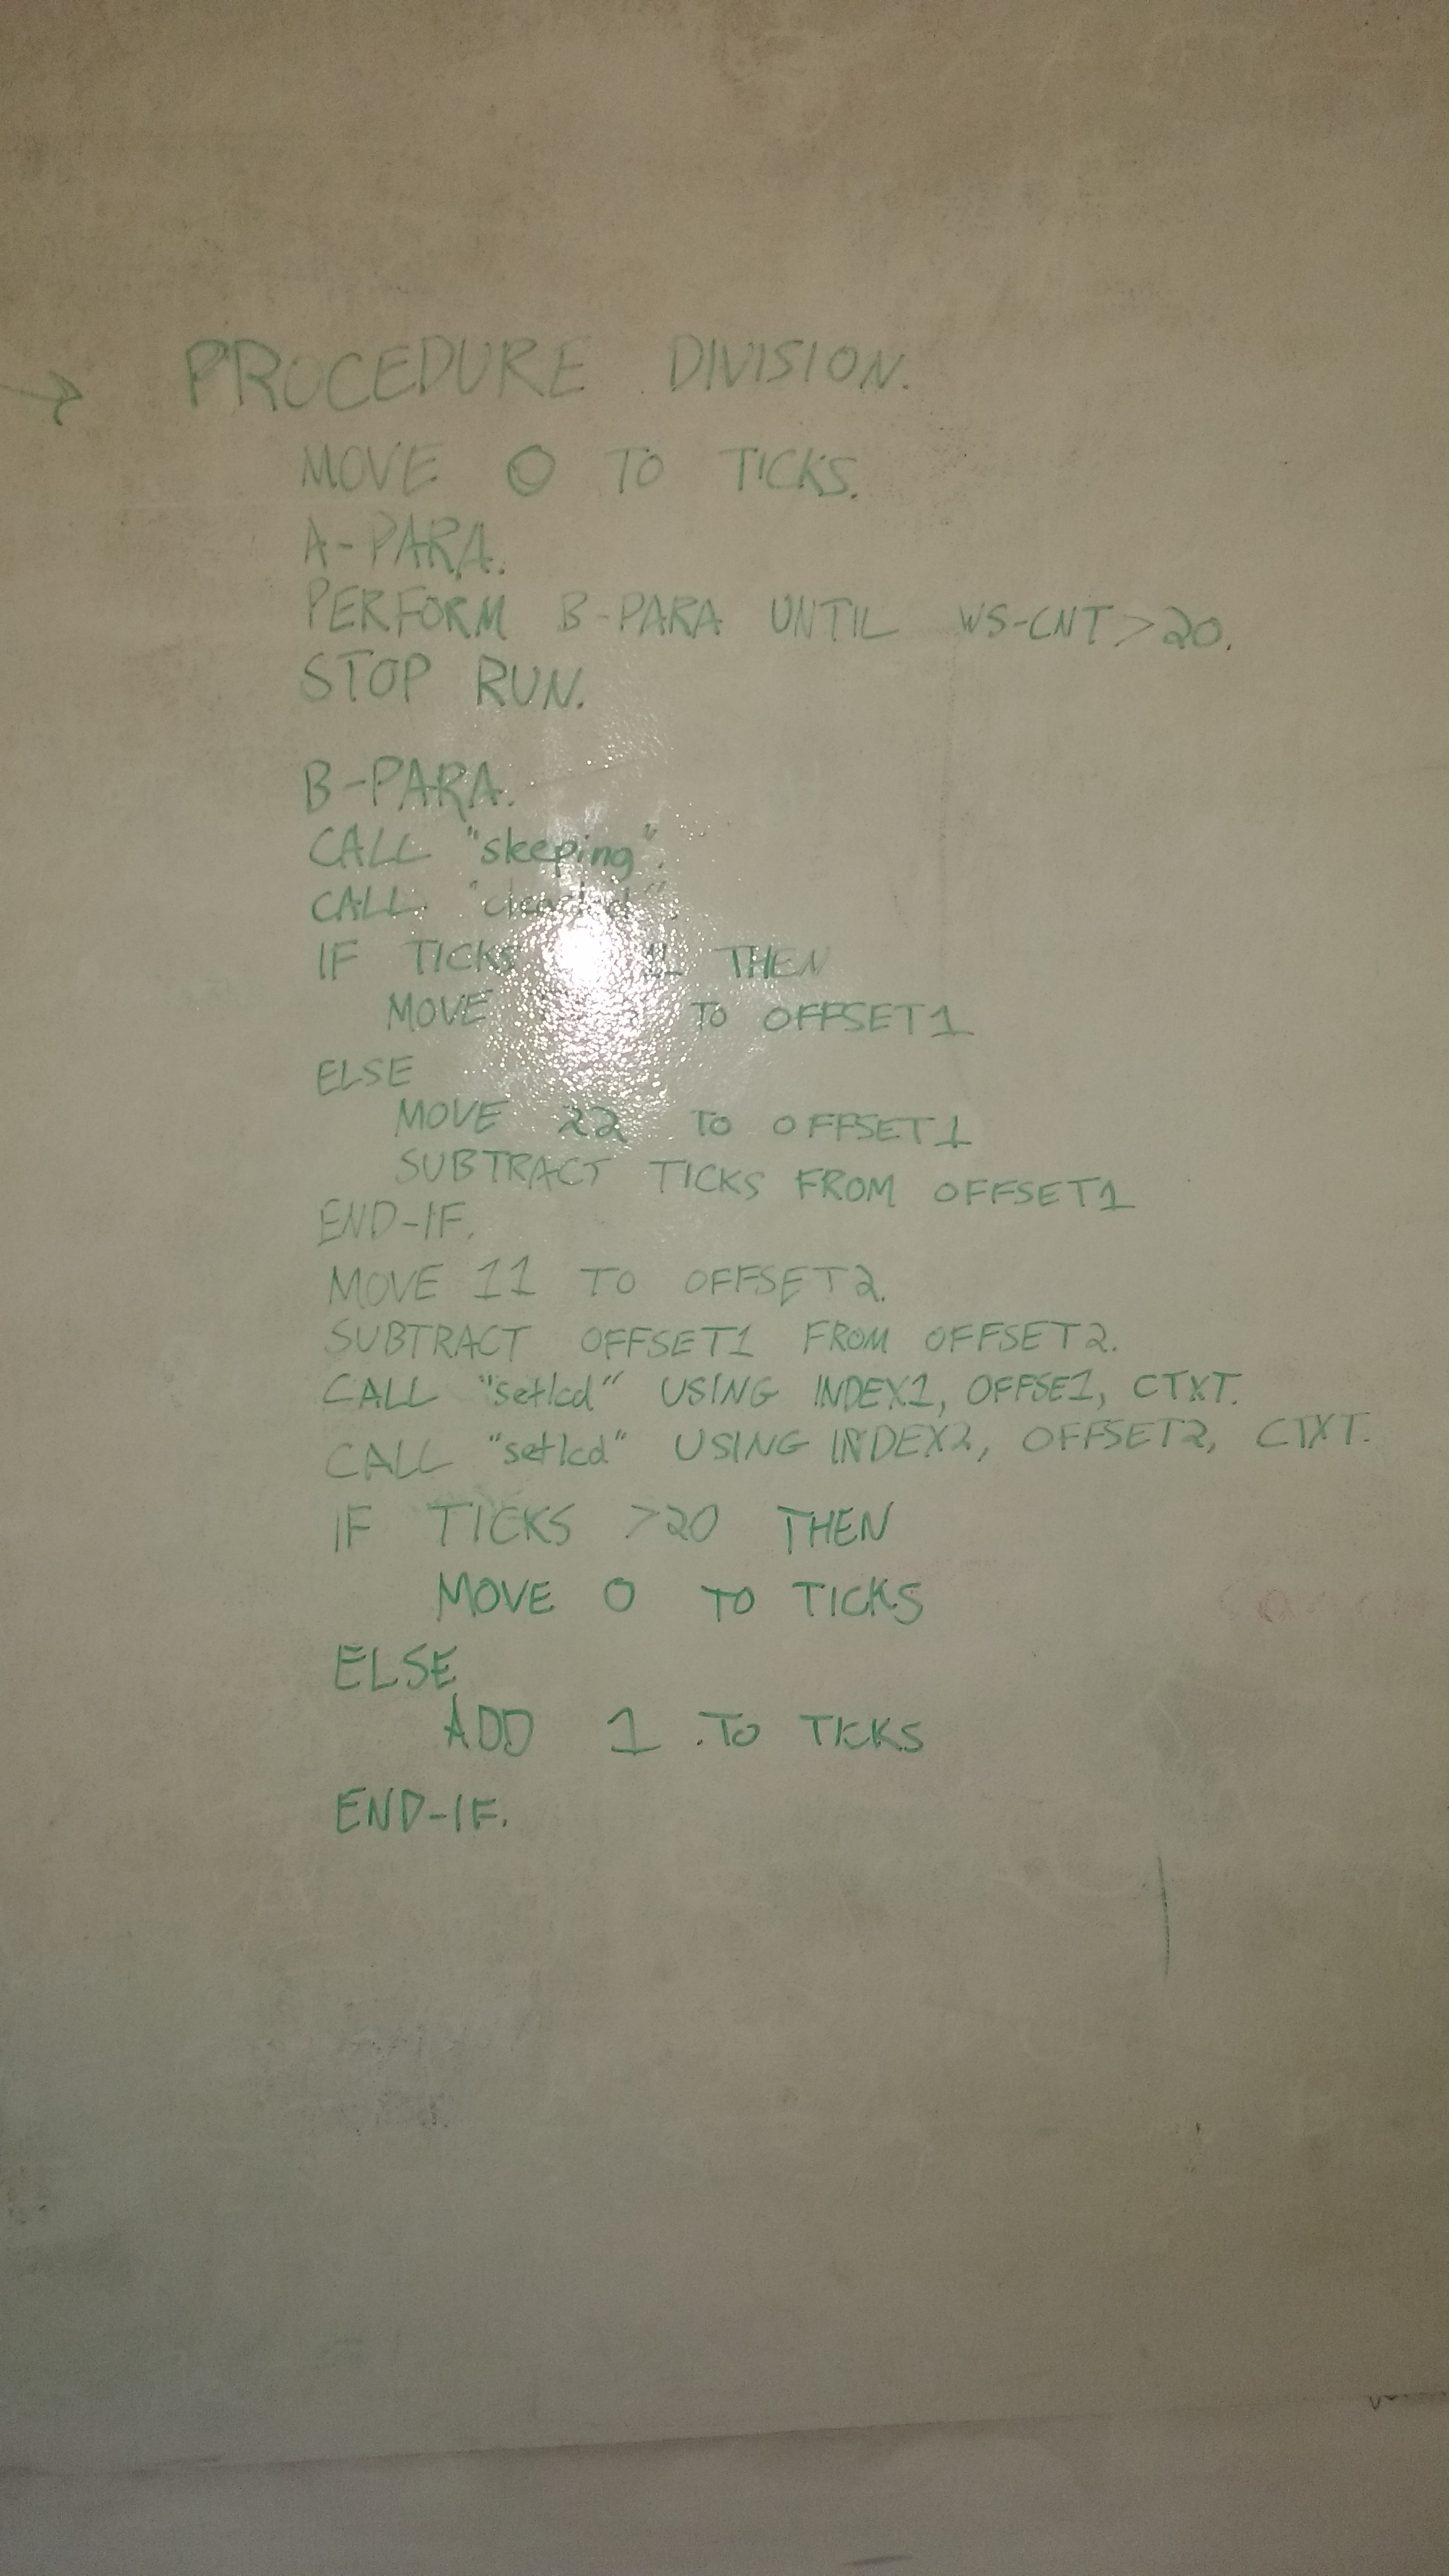 PROCEDURE DIVISION.
MOVE 0 TO TICKS.
A-PARA.
PERFORM B-PARA UNTIL WS-CNT>20.
STOP RUN.
B-PARA.
CALL "sleeping".
CALL
IF TICKS THEN
MOVE TO OFFSET1
ELSE
MOVE 22 TO OFFSET1
SUBTRACT TICKS FROM OFFSET1
END-IF.
MOVE 11 TO OFFSET2.
SUBTRACT OFFSET1 FROM OFFSET2.
CALL "setlcd" USING INDEX1, OFFSE1, CTXT.
CALL "setlcd" USING INDEX2, OFFSET2, CTXT.
IF TICKS >20 THEN
MOVE 0 TO TICKS
ELSE
ADD 1 TO TICKS
END-IF.